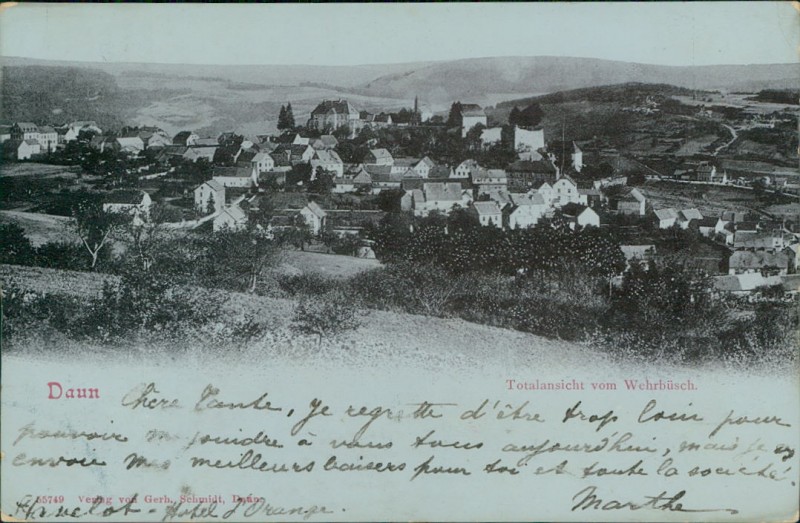 Daun
Totalansicht vom Wehrbüsch.
Chère Tante, je regrette d'être trop loin pour
pouvoir me joindre à vous tous aujourd'hui, mais je
envoie mes meilleurs baisers pour toi et toute la société.
Marthe
55749 Verlag von Gerh. Schmidt, Daun.
Hôtel d'Orange.